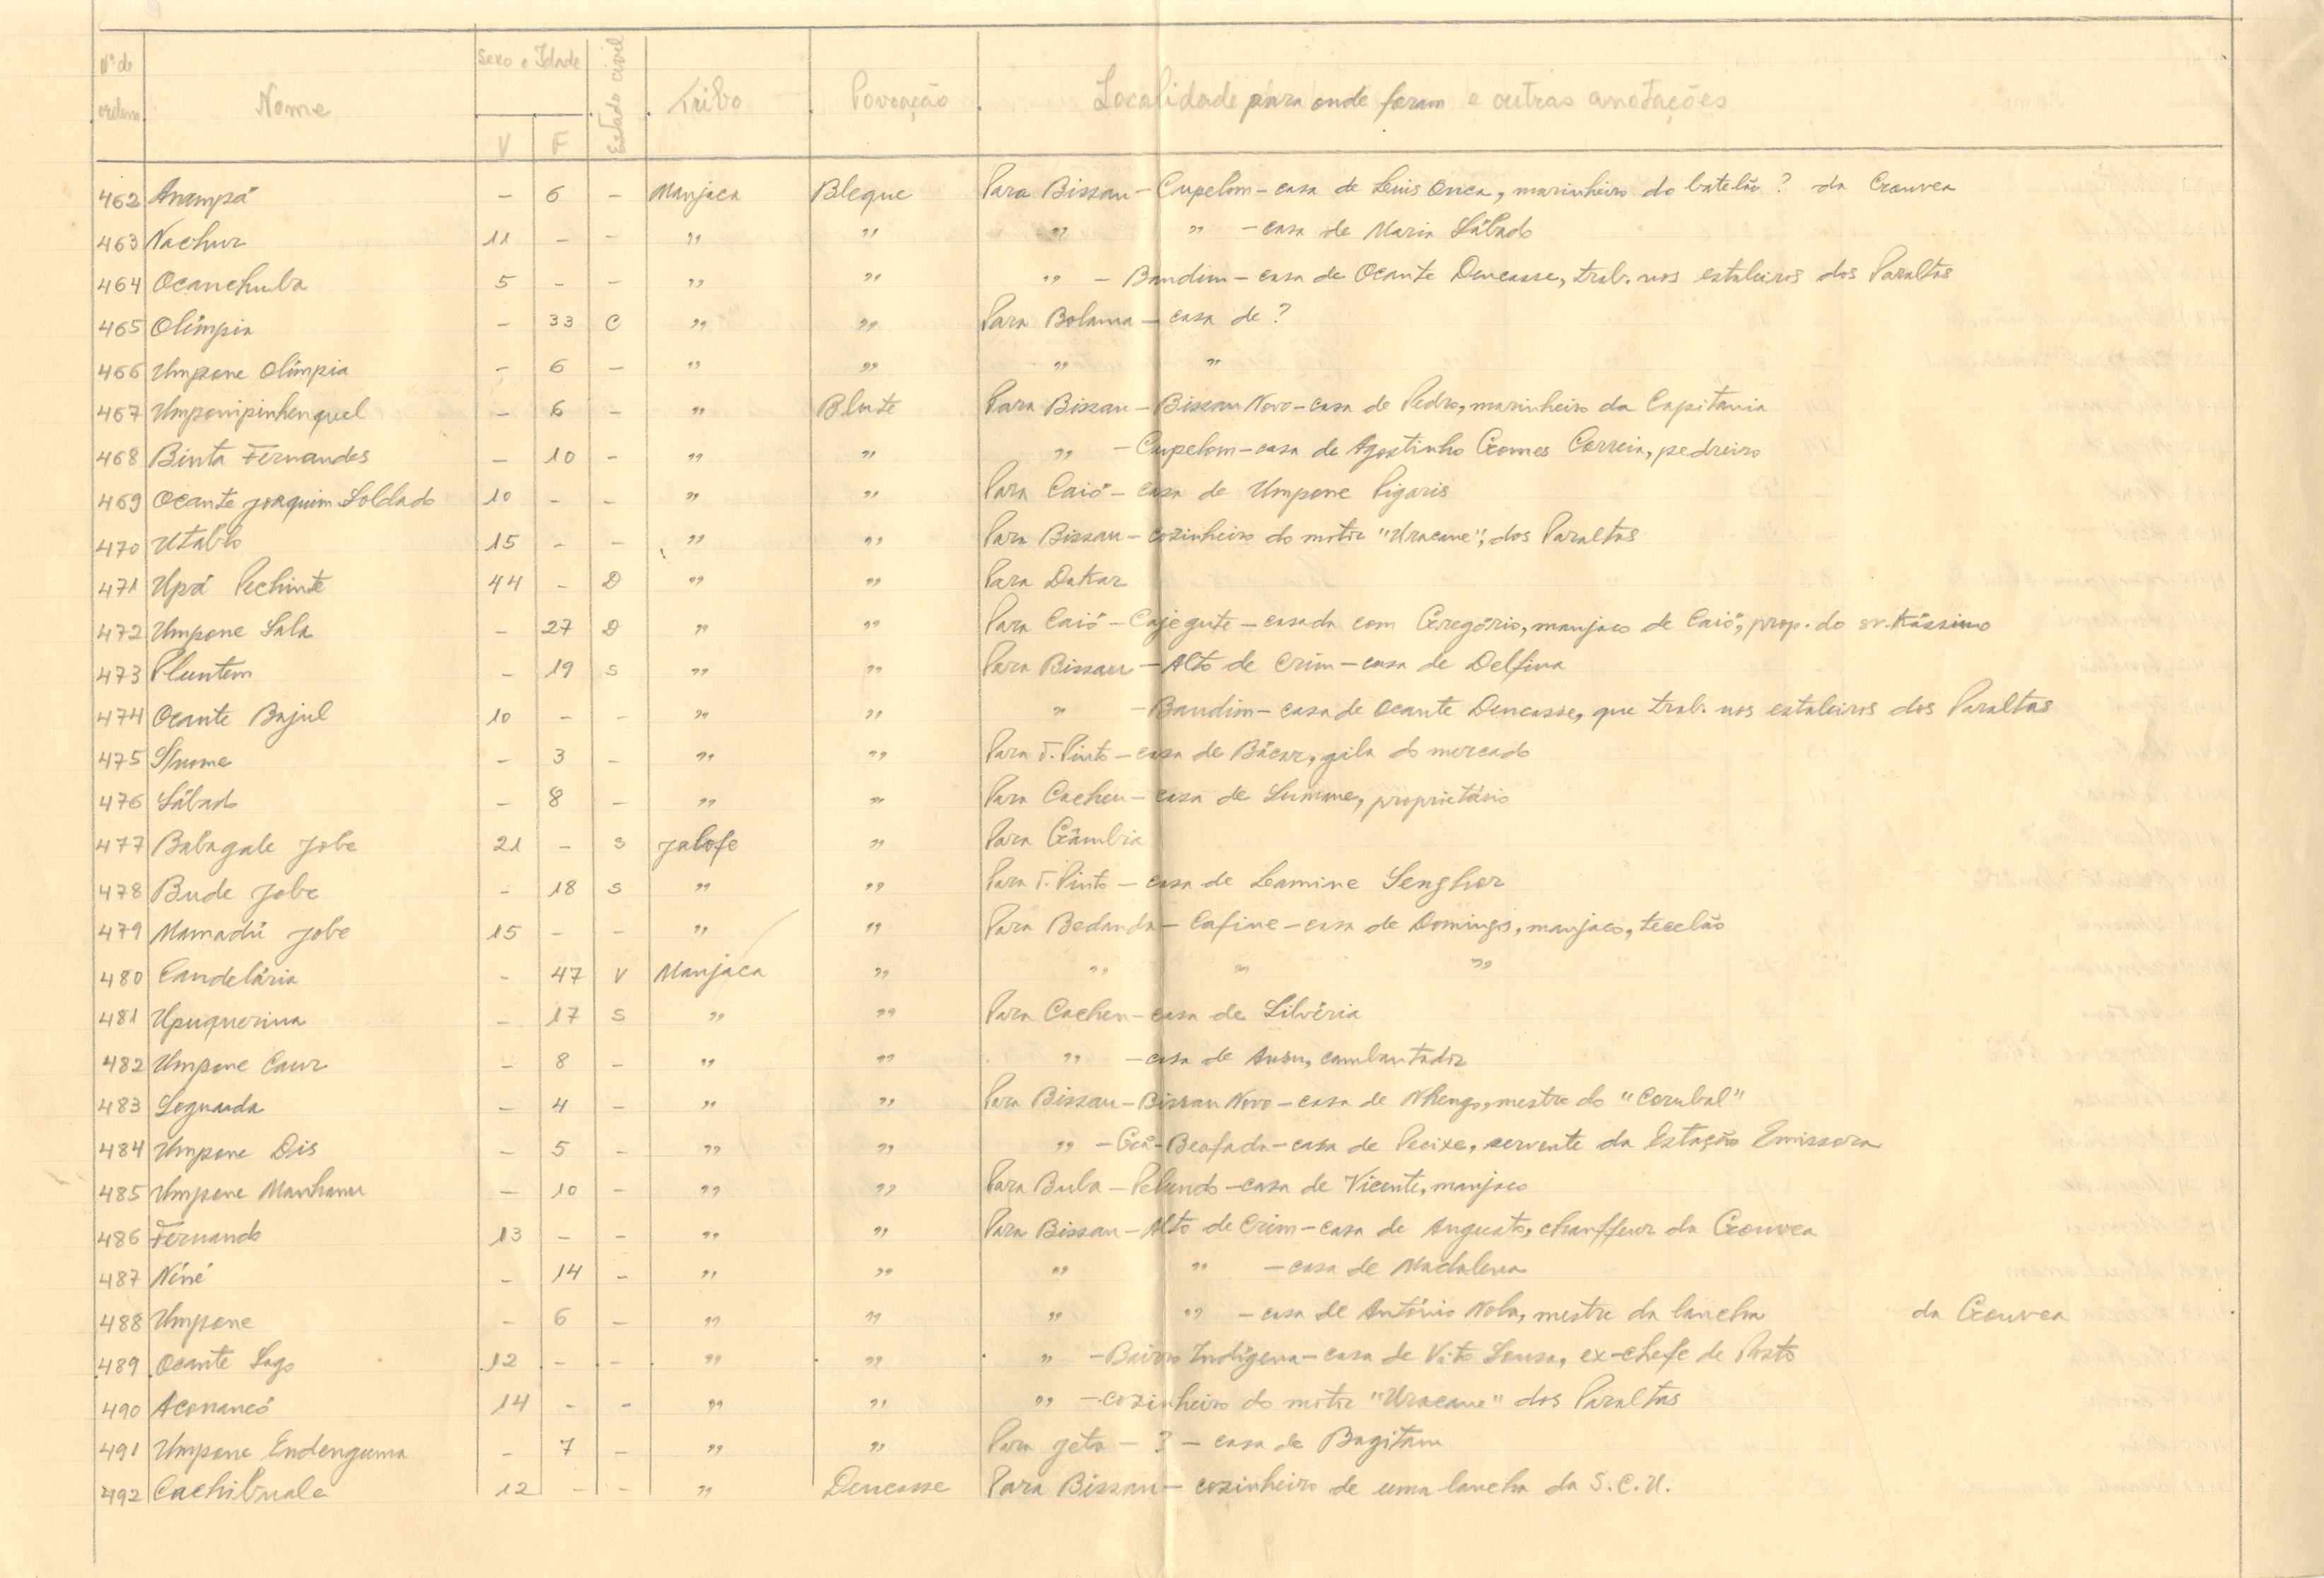 Nº de ordem Nome Sexo e Idade V F Estado civil Tribo Povoação Localidade para onde foram e outras anotações
462 Anampá - 6 - Manjaca Bleque Para Bissau - Cupelom - casa de Luis Onca, marinheiro do batelão ? da Gouvea
463 Nachur 11 - - " " " " - casa de Maria Sábado
464 Ocanchuba 5 - - " " " - Bandim - casa de Ocante Dencasse, trab. nos estaleiros dos Paraltas
465 Olímpia - 33 C " " Para Bolama - casa de ?
466 Umpone Olímpia - 6 - " " " "
467 Umponipinhenquel - 6 - " Blute Para Bissau - Bissau Novo - casa de Pedro, marinheiro da Capitania
468 Binta Fernandes - 10 - " " " - Cupelom - casa de Agostinho Gomes Correia, pedreiro
469 Ocante Joaquim Soldado 10 - - " " Para Caió - casa de Umpone Pigaris
470 Utabló 15 - - " " Para Bissau - cozinheiro do motor "Uracane", dos Paraltas
471 Upá Pechinte 44 - D " " Para Dakar
472 Umpone Sala - 27 D " " Para Caió - Cajegute - casada com Gregório, manjaco de Caió, prop. do sr. Kássimo
473 Pluntem - 19 S " " Para Bissau - Alto de Crim - casa de Delfina
474 Ocante Bajul 10 - - " " " - Bandim - casa de Ocante Dencasse, que trab. nos estaleiros dos Paraltas
475 S/nome - 3 - " " Para T. Pinto - casa de Bácar, gila do mercado
476 Sábado - 8 - " " Para Cacheu - casa de Summe, proprietário
477 Babagale Jobe 21 - S Jalofe " Para Gâmbia
478 Bude Jobe - 18 S " " Para T. Pinto - casa de Leamine Senghor
479 Mamadú Jobe 15 - - " " Para Bedanda - Cafine - casa de Domingos, manjaco, tecelão
480 Candelária - 47 V Manjaca " " " "
481 Upuquerina - 17 S " " Para Cacheu - casa de Silvéria
482 Umpone Caur - 8 - " " " - casa de Ansu, cambantador
483 Segunda - 4 - " " Para Bissau - Bissau Novo - casa de Nhengo, mestre do "Corubal"
484 Umpone Dis - 5 - " " " - Gã-Beafada - casa de Pecixe, servente da Estação Emissora
485 Umpone Manhanu - 10 - " " Para Bula - Pelundo - casa de Vicente, manjaco
486 Fernando 13 - - " " Para Bissau - Alto de Crim - casa de Augusto, chauffeur da Gouvea
487 Néné - 14 - " " " " - casa de Madalena
488 Umpone - 6 - " " " " - casa de António Nola, mestre da lancha da Gouvea
489 Ocante Sago 12 - - " " " - Bairro Indígena - casa de Vito Sousa, ex-chefe de Posto
490 Aconancó 14 - - " " " - cozinheiro do motor "Uracane" dos Paraltas
491 Umpone Endenguma - 7 - " " Para Jeta - ? - casa de Bagitam
492 Cachibuale 12 - - " Dencasse Para Bissau - cozinheiro de uma lancha da S.C.U.